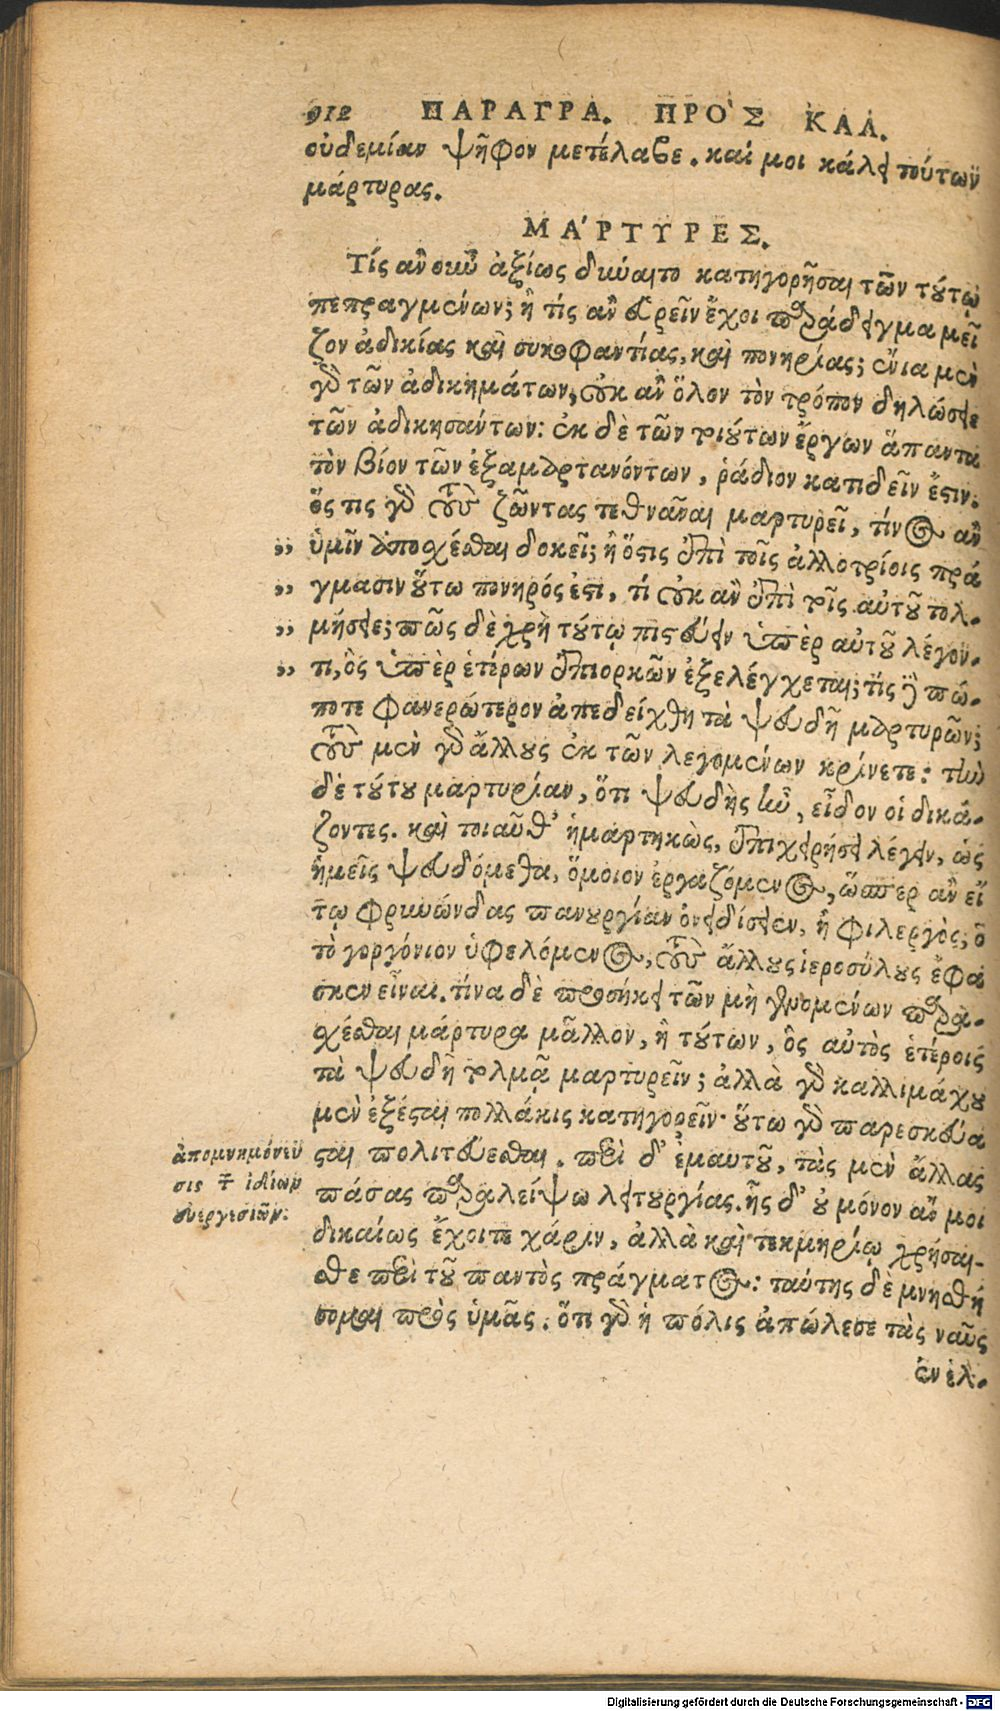 912 ΠΑΡΑΓΡΑ. ΠΡΟ'Σ ΚΑΛ.
οὐδεμίαν ψῆφον μετέλαβε. καί μοι κάλει τούτων
μάρτυρας.
ΜΑ'ΡΤΥΡΕΣ.
Τίς ἂν οὖν ἀξίως δύναιτο κατηγορῆσαι τῶν τούτῳ
πεπραγμένων; ἢ τίς ἂν εὑρεῖν ἔχοι παράδειγμα μεῖ
ζον ἀδικίας καὶ συκοφαντίας, καὶ πονηρίας; ἔνια μὲν
γὰρ τῶν ἀδικημάτων, οὐκ ἂν ὅλον τὸν τρόπον δηλώσειε
τῶν ἀδικησάντων: ἐκ δὲ τῶν τοιούτων ἔργων ἅπαντα
τὸν βίον τῶν ἐξαμαρτανόντων, ῥάδιον κατιδεῖν ἔστιν.
ὅς τις γὰρ τοὺς ζῶντας τεθνᾶναι μαρτυρεῖ, τίνος ἂν
" ὑμῖν ἀποσχέσθαι δοκεῖ; ἢ ὅστις ἐπὶ τοῖς ἀλλοτρίοις πρά
" γμασιν οὕτω πονηρός ἐστι, τί οὐκ ἂν ἐπὶ τοῖς αὐτοῦ τολ-
" μήσειε; πῶς δὲ χρὴ τούτῳ πιστεύειν ὑπὲρ αὐτοῦ λέγον-
" τι, ὃς ὑπὲρ ἑτέρων ἐπιορκῶν ἐξελέγχεται; τίς δὲ πώ-
ποτε φανερώτερον ἀπεδείχθη τὰ ψευδῆ μαρτυρῶν;
τοὺς μὲν γὰρ ἄλλους ἐκ τῶν λεγομένων κρίνετε: τὴν
δὲ τούτου μαρτυρίαν, ὅτι ψευδὴς ἦν, εἶδον οἱ δικά-
ζοντες. καὶ τοιαῦθ' ἡμαρτηκὼς, ἐπιχειρήσει λέγειν, ὡς
ἡμεῖς ψευδόμεθα, ὅμοιον ἐργαζόμενος, ὥσπερ ἂν εἴ
τῳ φρυνώνδας πανουργίαν ὀνειδίσειεν, ἢ φιλεργὸς; ὁ
τὸ γοργόνιον ὑφελόμενος, τοὺς ἄλλους ἱεροσύλους ἔφα
σκεν εἶναι. τίνα δὲ προσήκει τῶν μὴ γενομένων παρα-
σχέσθαι μάρτυρα μᾶλλον, ἢ τούτων, ὃς αὐτὸς ἑτέροις
τὰ ψευδῆ τολμᾷ μαρτυρεῖν; ἀλλὰ γὰρ καλλιμάχου
μὲν ἐξέσται πολλάκις κατηγορεῖν· οὕτω γὰρ παρεσκεύα
σται πολιτεύεσθαι. περὶ δ' ἐμαυτοῦ, τὰς μὲν ἄλλας
πάσας παραλείψω λειτουργίας. ἧς δ' οὐ μόνον ἄν μοι
δικαίως ἔχοιτε χάριν, ἀλλὰ καὶ τεκμηρίῳ χρήσαι-
σθε περὶ τοῦ παντὸς πράγματος: ταύτης δὲ μνησθή
σομαι πρὸς ὑμᾶς. ὅτι γὰρ ἡ πόλις ἀπώλεσε τὰς ναῦς
ἐν ἑλ-
ἀπομνημόνευ
σις τῶν ἰδίων
εὐεργεσιῶν.
Digitalisierung gefördert durch die Deutsche Forschungsgemeinschaft - DFG